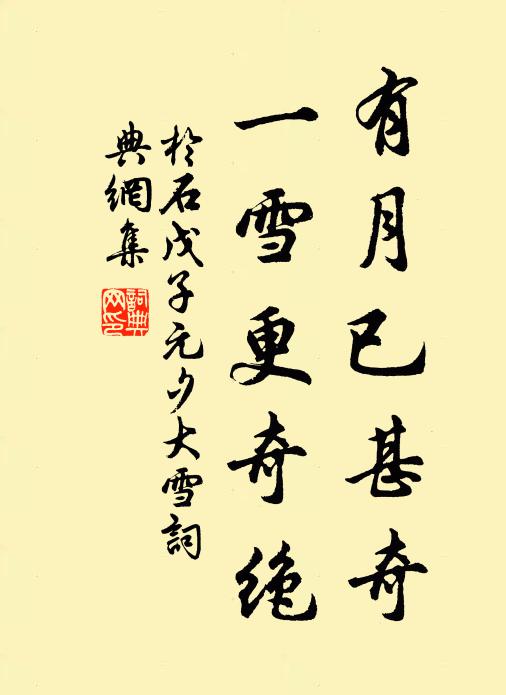 有月已甚奇
一雪更奇絶
於石戊子元夕大雪詞
典網集
詞典網印